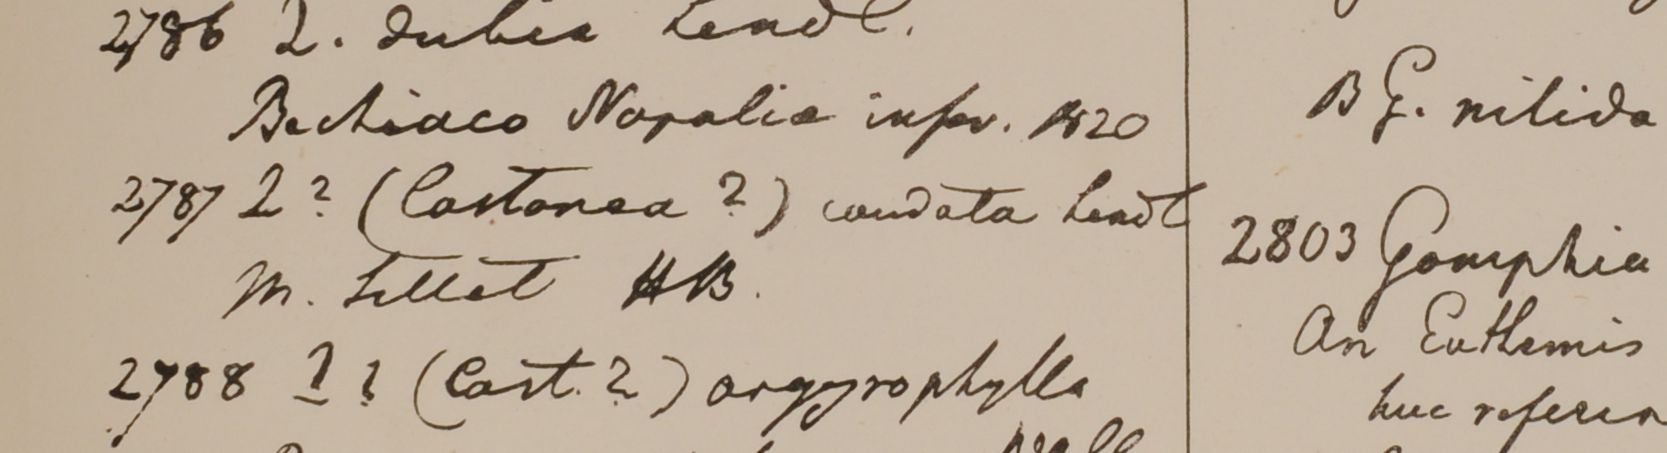 2786 Q. dubia Lindl.
Bechiaco Nopalia infer. 1820
2787 Q? (Castanea?) caudata Lindl
M. Sillet HB.
2788 Q? (Cast.?) argyrophylla
Wall
B G. nitida
2803 Gomphia
An Euthemis
huc referen